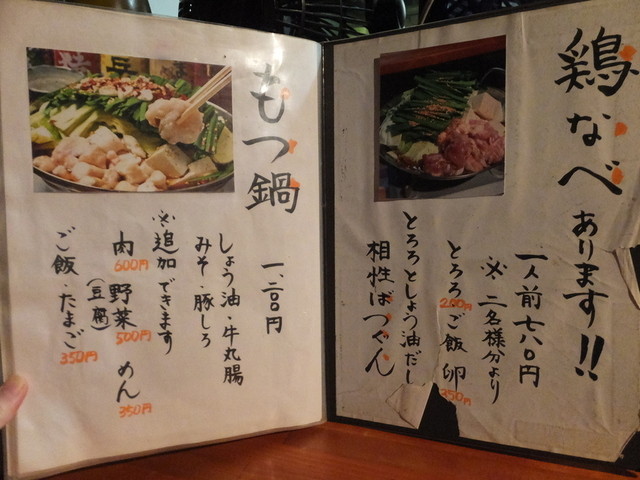 鶏なべあります!!
一人前七八〇円
※二名様分より
とろろ 200円 ご飯 卵 350円
とろろとしょう油だし
相性ばつぐん
もつ鍋
一、二〇〇円
しょう油・牛丸腸
みそ・豚しろ
※追加できます
肉 600円 野菜 500円 めん 350円
(豆腐)
ご飯・たまご 350円